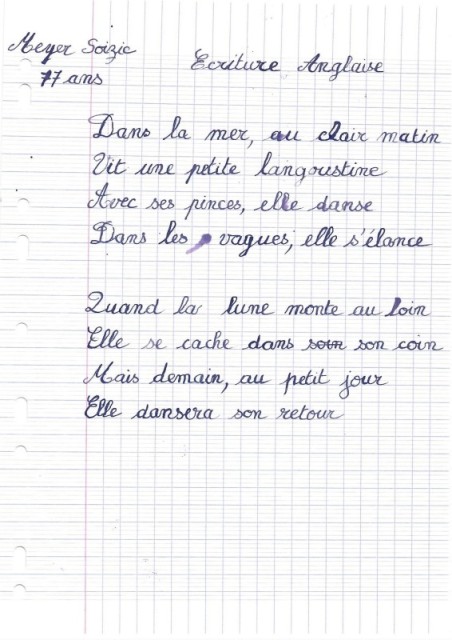 Meyer Soizic
Ecriture Anglaise
77 ans
Dans la mer, au clair matin
Vit une petite langoustine
Avec ses pinces, elle danse
Dans les vagues, elle s'élance
Quand la lune monte au loin
Elle se cache dans son son coin
Mais demain, au petit jour
Elle dansera son retour